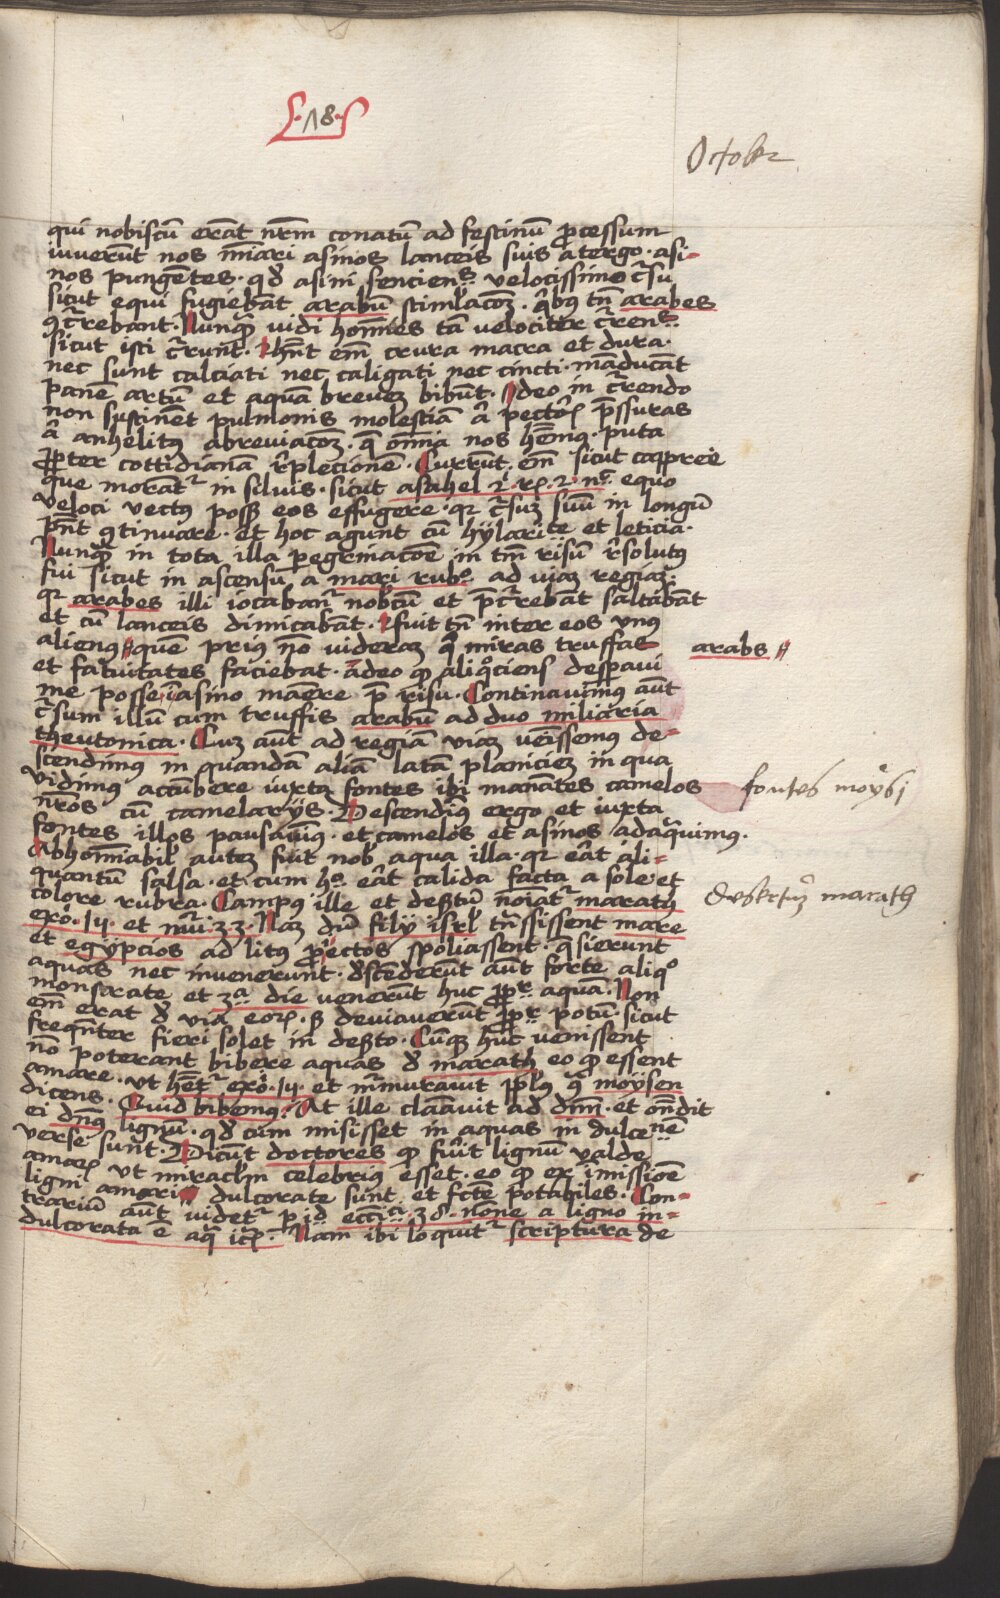 .18.
October
qui nobiscū erāt nr̄m conatū ad festinū ꝓcessum
iuverūt nos mīari asinos lanceis suis a tergo · asi⸗
nos pungētes · qd̄ asini sencienˢ velocissimo c̄ſu
sicut equi fugiebāt arabū stimlacōꝫ · qͥbꝰ tn̄ arabes
ꝯc̄rebant · Nunqͣ vidi homīes tā velociter c̄renˢ
sicut isti c̄runt · Hn̄t em̄ crura macra et dura ·
nec sunt calciati nec caligati nec cincti · māducāt
panē artū et aquā brevem bibūt · Ideo in c̄rendo
non sustinēt pulmonis molestiā aͭ pectoꝝ p̄ssuras
aͭ anhelitꝰ abreviacōꝫ · q̄ om̄ia nos hēmꝰ · puta
ꝓpter cottidianā r̄plecionē · Currūt em̄ sicut capree
que morātᷣ in siluis · sicut asahel 2º rꝝ · 2 · nͨ equo
veloci vectꝰ posꝫ eos effugere · qꝛ c̄ſuꝫ suū in longū
pn̄t ꝯtinuare · et hoc agunt cū hylarite et leticia ·
Nunqͣ in tota illa peregrinacōe in tm̄ risū r̄solutꝰ
fui sicut in ascensu a mari rubº ad viaꝫ regiaꝫ
qꝛ arabes illi iocabanᷣ nobcū et p̄c̄rebāt saltabāt
et cū lanceis dimicabāt · fuit tn̄ inter eos vnus
alienꝰ quē prius nō videraꝫ qͥ miras truffas
arabs
et fatuitates faciebat · adeo ꝙ aliqͦciens desꝑavi
me posse ī asino manēre p̄ risu · Continauimꝰ aūt
c̄ſum illū cum truffis arabū ad duo miliaria
theutonica · Cuꝫ aūt ad regiā viaꝫ venissemus de⸗
scendimꝰ in quandā aliā latā planiciem in qua
vidimꝰ accūbere iuxta fontes ibi manātes camelos
fontes moÿsi
nr̄os cū camelarÿs · Descendimꝰ ergo et iuxta
fontes illos pausauimꝰ · et camelos et asinos adaqͣuimus ·
Abhomīabil̄ autem fuit nob̄ aqua illa · qꝛ erāt ali⸗
quantū salsa · et cum hº erāt calida facta a sole et
colore rubra · Campꝰ ille et desertū noīatᷣ marath
desertum marath
exoº · 14 · et nuͫ · 33 · Naꝫ dū filÿ isrl̄ tn̄sissent mare
et egypcios ad litꝰ ꝓiectos spoliassent · q̄sierunt
aquas nec invenerunt · dscēderūt aūt forte aliqͦ
monstrate et 3ª die venerūt huc ꝓpᷣ aquā · Non
em̄ erat d̄ via eoꝝ · sꝫ deviaverūt ꝓpᷣ potū · sicut
freqn̄ter fieri solet in desᷣto · Cūqꝫ huc venissent
nō poterant bibere aquas d̄ marath eo ꝙ essent
amare · vt hētᷣ exoº · 14 · et m̄muravit ppl̄us ꝯͣ moÿsen
dicens · Quid bibemꝰ · At ille clamavit ad dn̄m · et on̄dit
ei dn̄us lignū · qd̄ cum misisset in aquas in dulcenē
verse sunt · Dicūt doctores ꝙ fuit lignū valde
amaꝝ vt miracl̄m celebrius esset · eo ꝙ ex imissiōe
ligni amari dulcorate sunt et fcte potabiles · Con⸗
trariū aūt videtᷣ ꝑ id ecciª · 38 · nōne a ligno in⸗
dulcorata ē aqͣ · Nam ibi loquitᷣ scriptura de